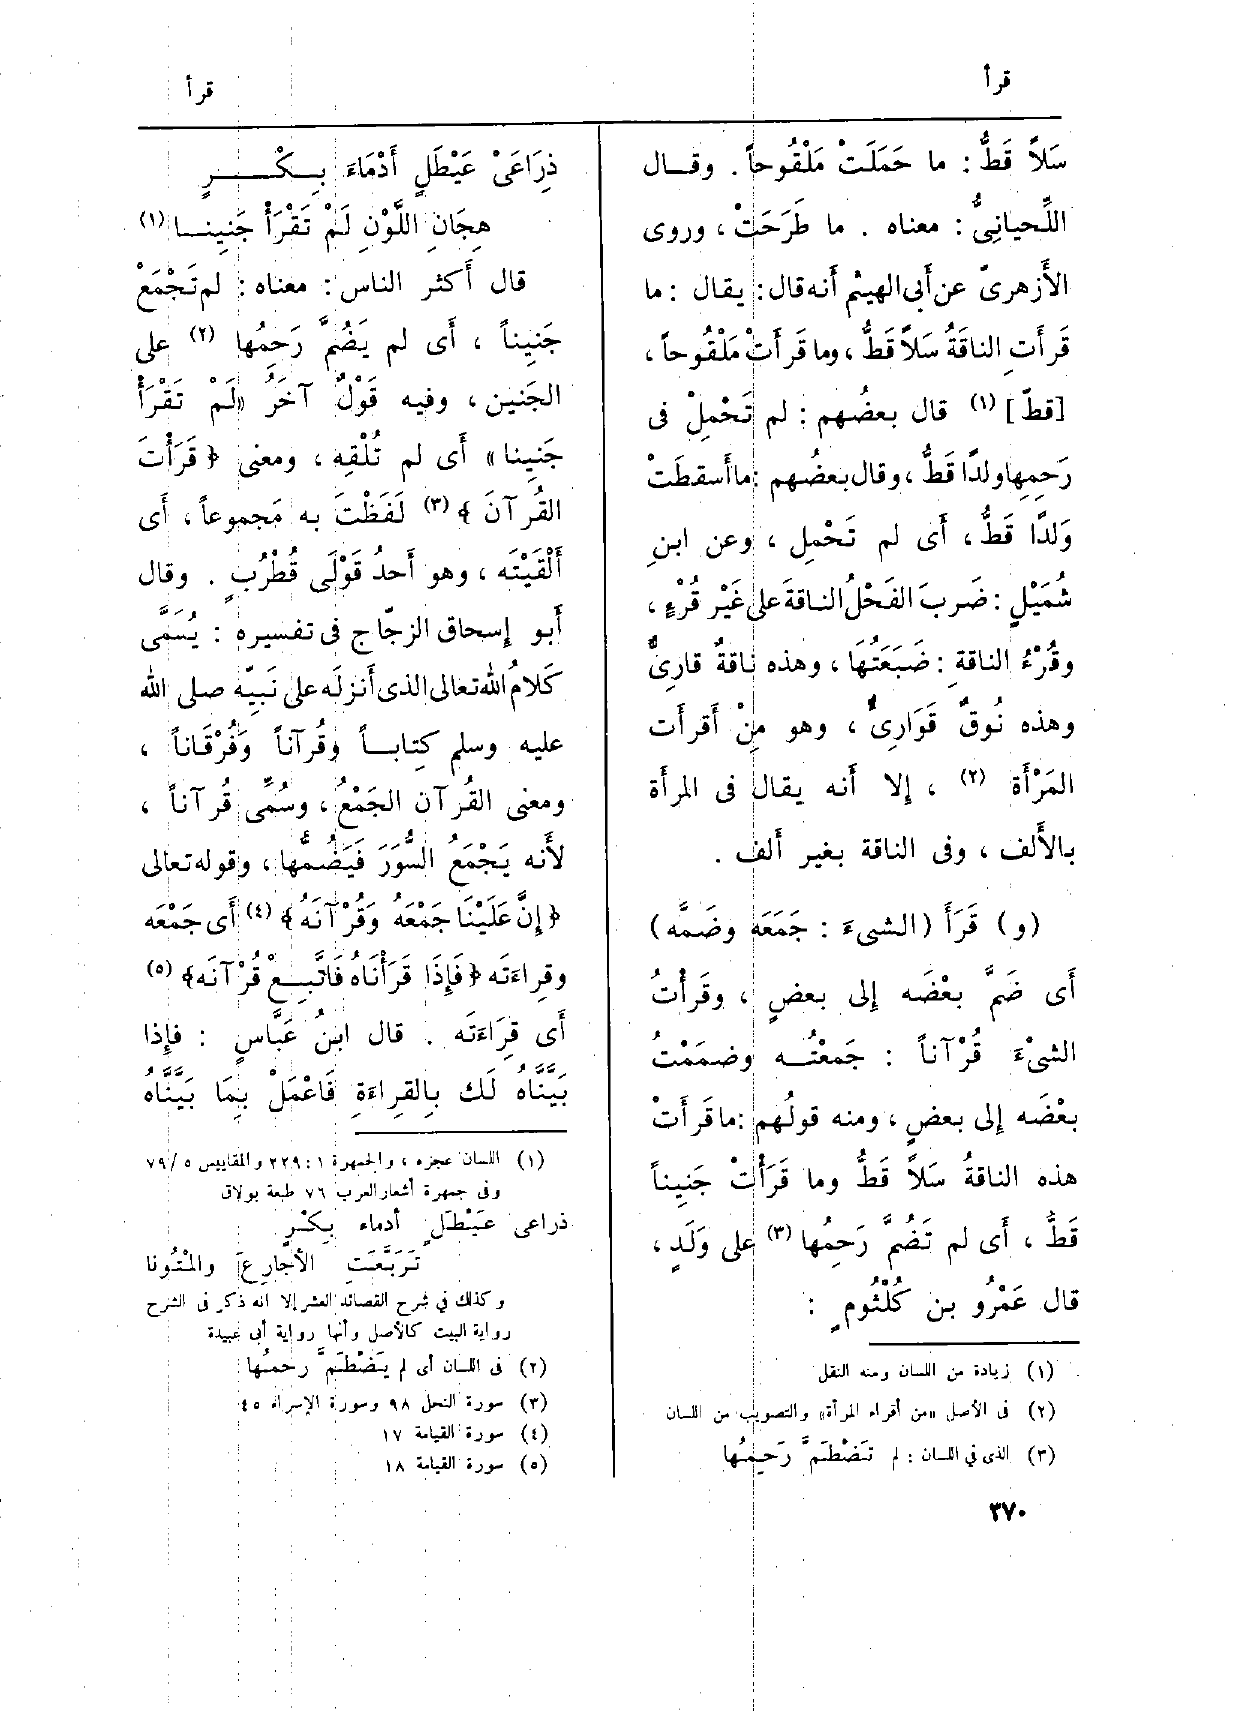 قرأ
قرأ
سَلاً قَطُّ : ما حَمَلَتْ مَلْقُوحاً . وقــال
اللِّحيانِىُّ : معناه . ما طَرَحَتْ ، وروى
الأَزهرىّ عن أَبى الهيثم أَنه قال : يقال : ما
قَرأَتِ الناقَةُ سَلاً قَطُّ ، وما قرأَتْ مَلْقُوحاً ،
[قطّ] (١) قال بعضُهم : لم تَحْمِلْ فى
رَحِمِها ولدًا قَطُّ ، وقال بعضُهم : ما أَسقطَتْ
وَلدًا قَطُّ ، أَى لم تَحْمِل ، وعن ابنِ
شُمَيْلٍ : ضَربَ الفَحْلُ الناقةَ على غَيْر قُرْءٍ ،
وقُرْءُ الناقةِ : ضَبَعَتُهَا ، وهذه ناقةٌ قارِئٌ
وهذه نُوقٌ قَوَارِئُ ، وهو مِنْ أَقرأَت
المَرْأَة (٢) ، إلا أَنه يقال فى المرأَة
بالأَلف ، وفى الناقة بغير أَلف .
(و) قَرَأَ (الشىءَ : جَمَعَه وضَمَّه)
أَى ضَمَّ بعْضَه إِلى بعضٍ ، وقَرأْتُ
الشىْءَ قُرْآناً : جَمعْتُــه وضمَمْتُ
بعْضَه إِلى بعضٍ ، ومنه قولُهم : ما قَرأَتْ
هذه الناقةُ سَلاً قَطُّ وما قَرَأَتْ جَنِيناً
قَطُّ ، أَى لم تَضُمَّ رَحِمُها (٣) على وَلَدٍ ،
قال عَمْرُو بن كُلْثُومٍ :
(١) زيادة من اللسان ومنه النقل
(٢) فى الأصل «من أقراء المرأة» والتصويب من اللسان
(٣) الذى فى اللسان : لم تَضْطَمَّ رَحِيمُها
٣٧٠
ذِرَاعَىْ عَيْطَلٍ أَدْمَاءَ بِــكْــــرٍ
هِجَانِ اللَّوْنِ لَمْ تَقْرَأْ جَنِينــا (١)
قال أَكثر الناس : معناه : لم تَجْمَعْ
جَنِيناً ، أَى لم يَضُمَّ رَحِمُها (٢) على
الجَنين ، وفيه قَوْلٌ آخَرُ «لَمْ تَقْرَأْ
جَنِينا» أَى لم تُلْقِه ، ومعنى ﴿قَرَأْتَ
القُرآنَ﴾ (٣) لَفَظْتَ به مَجموعاً ، أَى
أَلْقَيْتَه ، وهو أَحدُ قَوْلَى قُطْرُبٍ . وقال
أَبو إِسحاق الزجّاج فى تفسيره : يُسَمَّى
كَلامُ الله تعالى الذى أَنزلَه على نَبيِّه صلى الله
عليه وسلم كِتابــاً وقُرآناً وَفُرْقَاناً ،
ومعنى القُرآن الجَمْعُ ، وسُمِّى قُرآناً ،
لأَنه يَجْمَعُ السُّوَرَ فَيَضُمُّها ، وقوله تعالى
﴿إِنَّ عَلَيْنَا جَمْعَهُ وَقُرْآنَهُ﴾ (٤) أَى جَمْعَه
وقِراءَتَه ﴿فَإِذَا قَرَأْنَاهُ فَاتَّبِــعْ قُرْآنَه﴾ (٥)
أَى قِرَاءَتَه . قال ابنُ عَبَّاسٍ : فإِذا
بَيَّنَّاه لَك بِالقراءَةِ فَاعْمَلْ بِمَا بَيَّنَّاه
(١) اللسان عجزه ، والجمهرة ١ : ٢٢٩ والمقاييس ٥/٧٩
وفى جمهرة أشعار العرب ٧٦ طبعة بولاق
ذراعى عَيْطَلٍ أدماء بِكْرٍ
تَرَبَّعَتِ الأجارِعَ والمُتُونا
وكذلك فى شرح القصائد العشر إلا انه ذكر فى الشرح
رواية البيت كالأصل وأنها رواية أبى عبيدة
(٢) فى اللسان أى لم يَضْطَمَّ رحمُها
(٣) سورة النحل ٩٨ وسورة الإسراء ٤٥
(٤) سورة القيامة ١٧
(٥) سورة القيامة ١٨